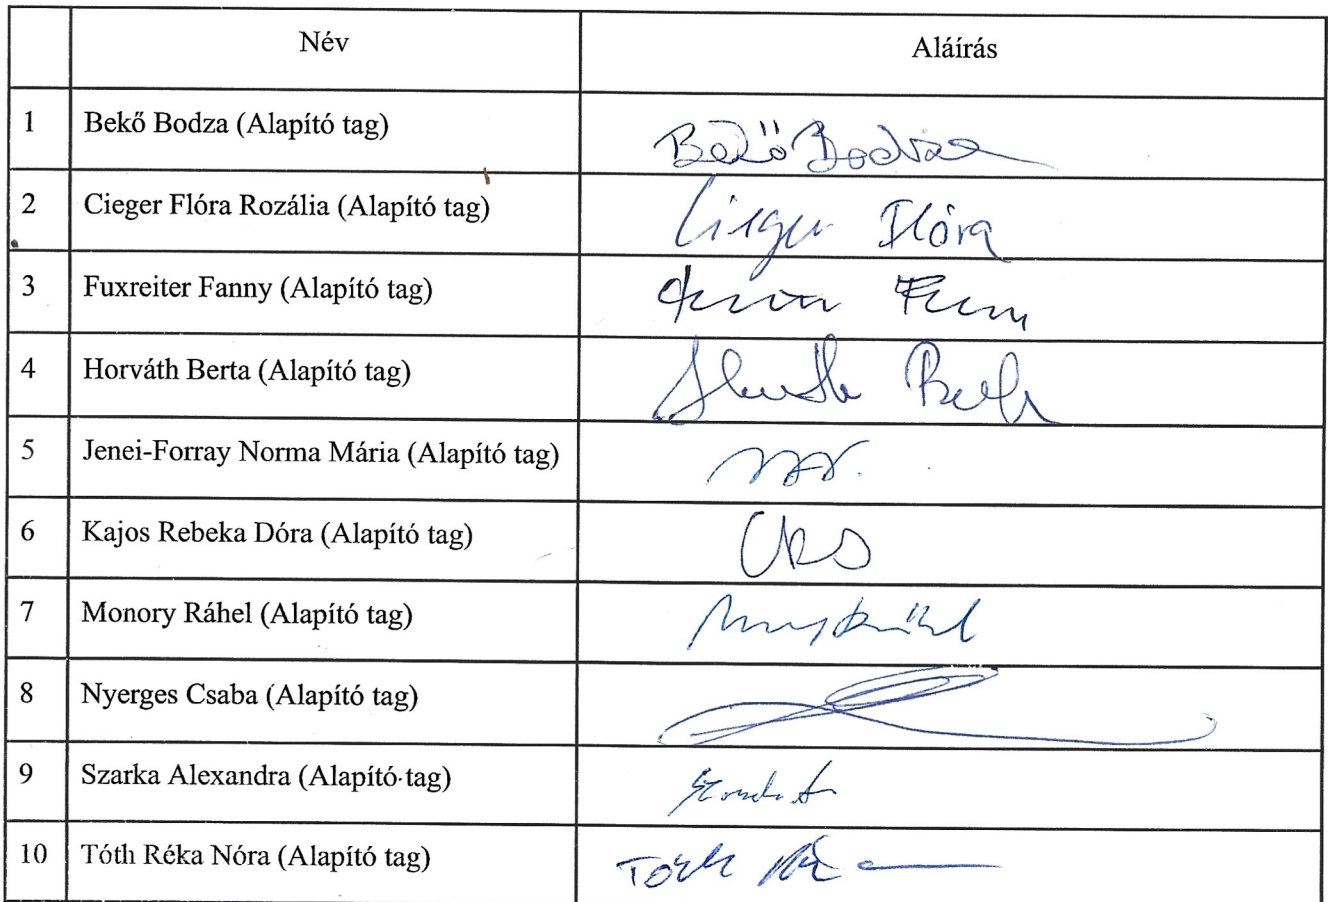 Név Aláírás
1 Bekő Bodza (Alapító tag) Bekő Bodza
2 Cieger Flóra Rozália (Alapító tag) Cieger Flóra
3 Fuxreiter Fanny (Alapító tag)
4 Horváth Berta (Alapító tag)
5 Jenei-Forray Norma Mária (Alapító tag)
6 Kajos Rebeka Dóra (Alapító tag)
7 Monory Ráhel (Alapító tag)
8 Nyerges Csaba (Alapító tag)
9 Szarka Alexandra (Alapító tag)
10 Tóth Réka Nóra (Alapító tag) Tóth